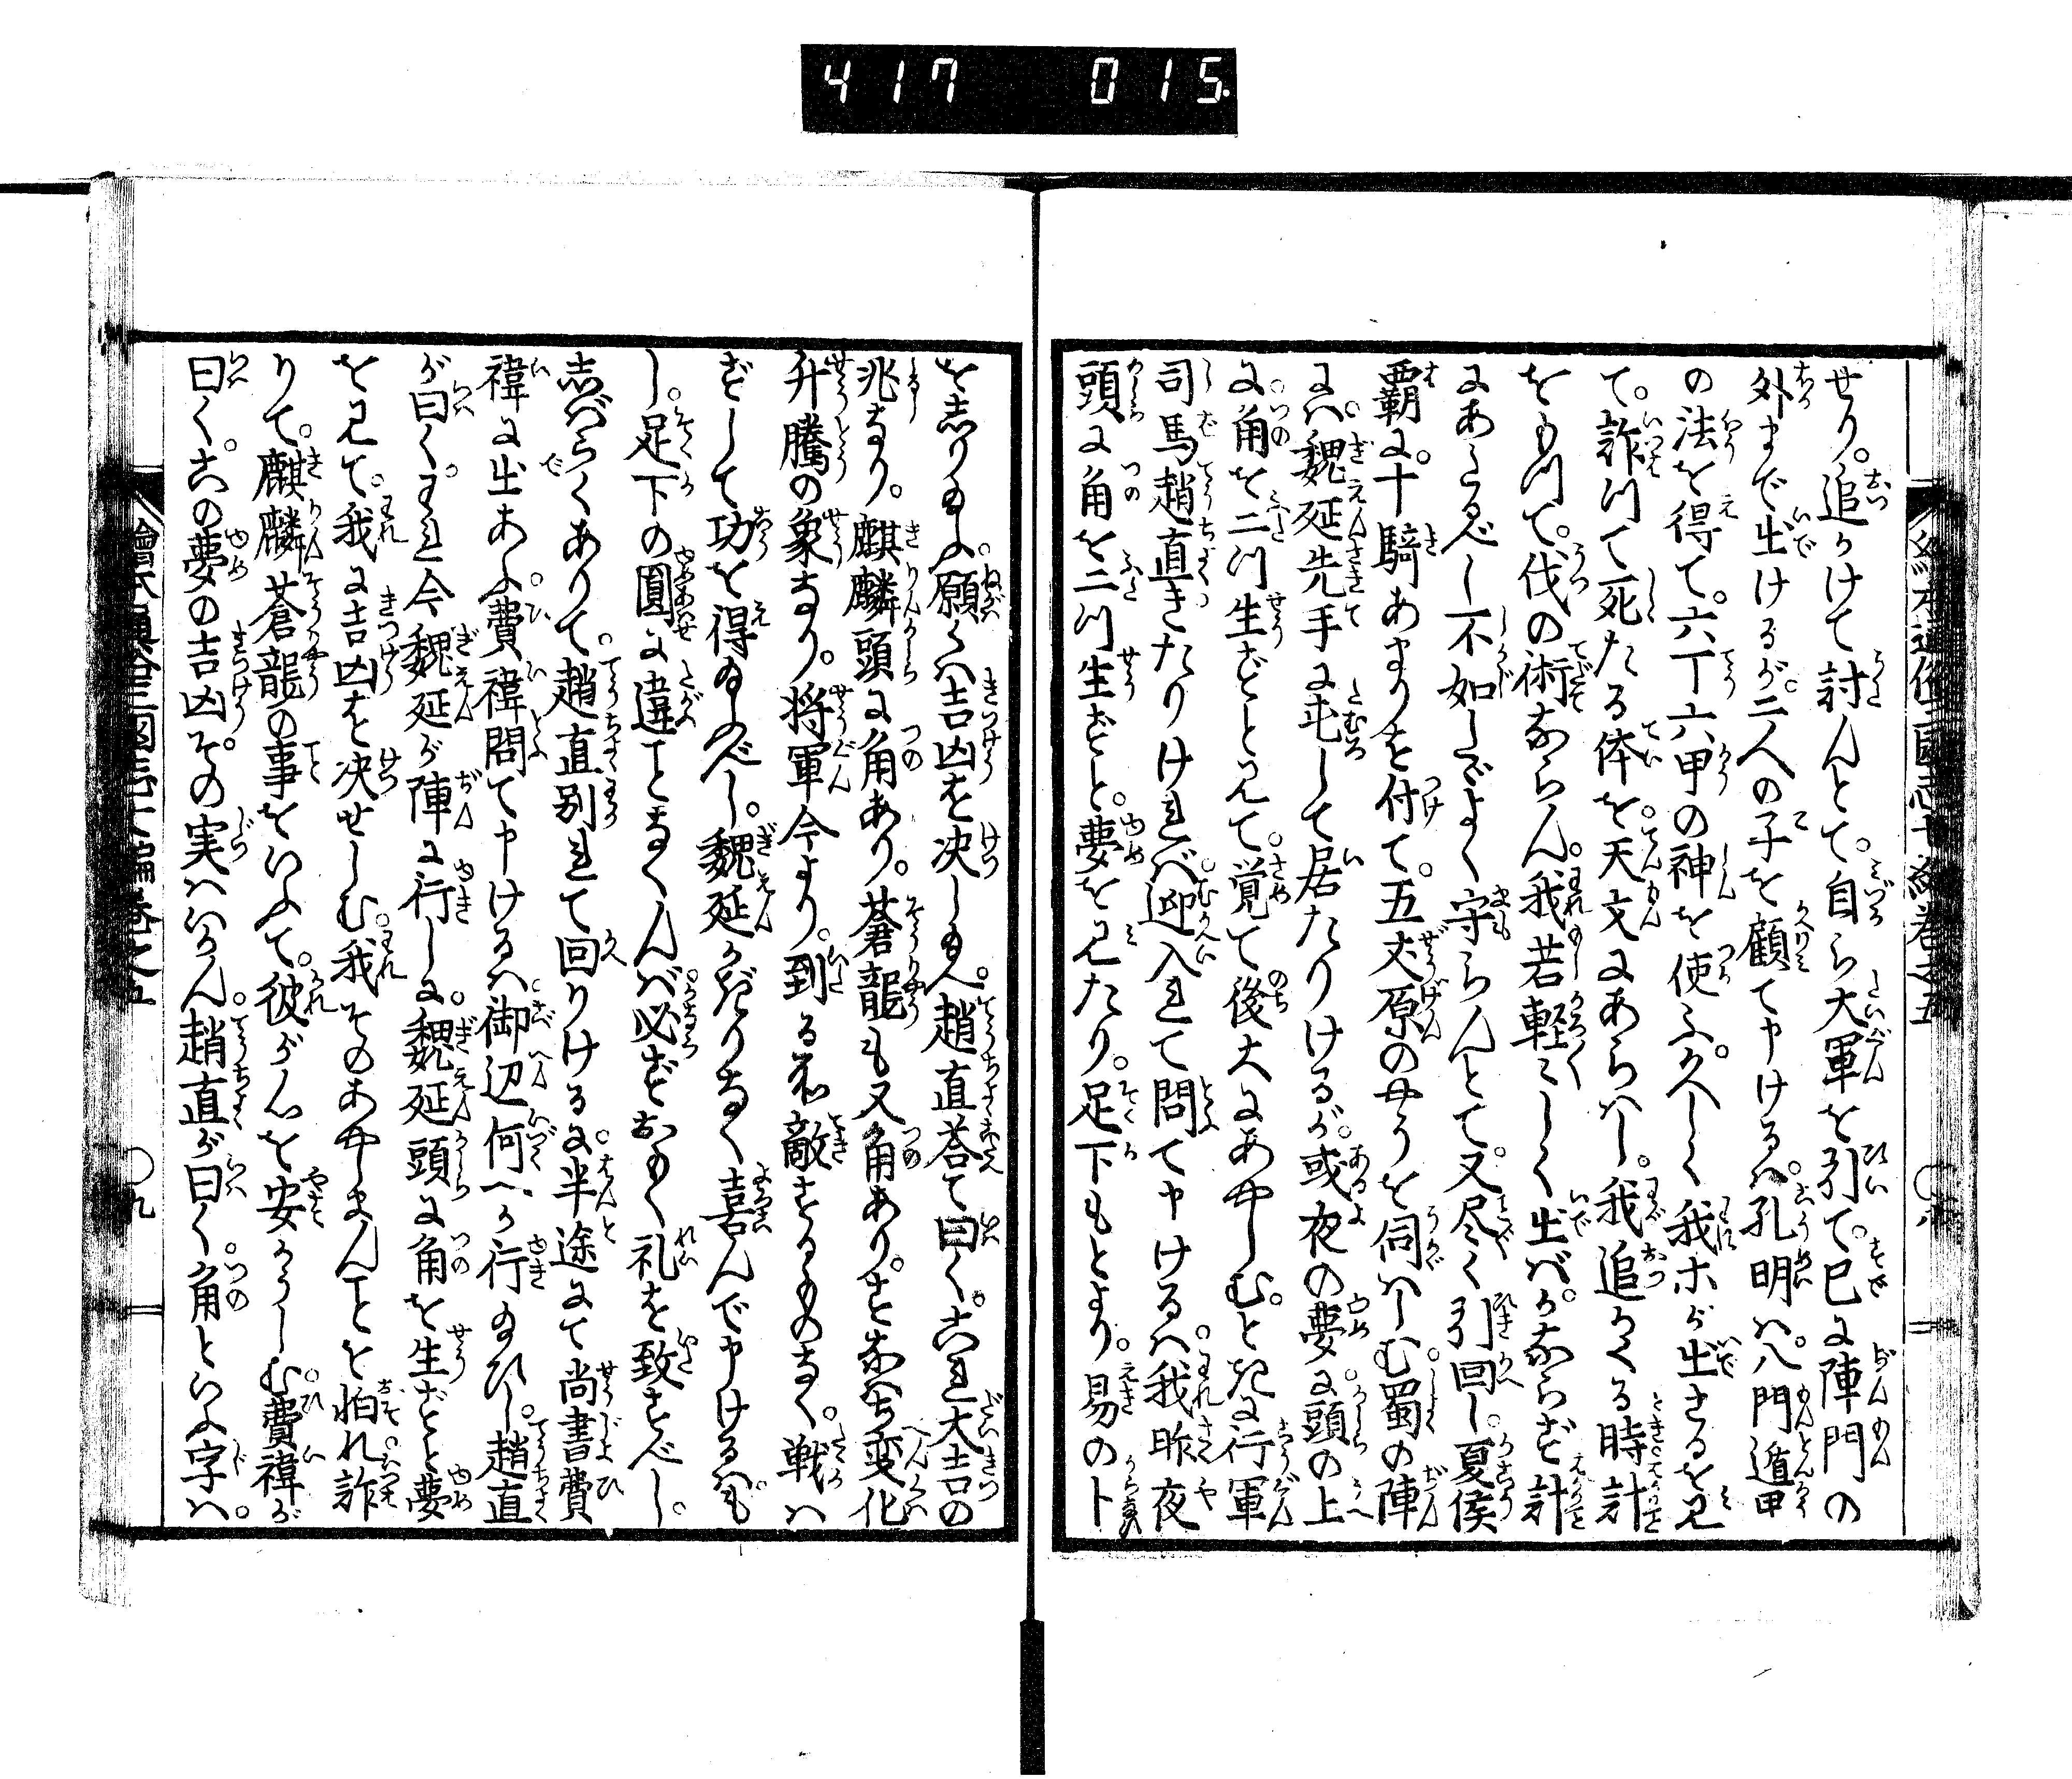 417 015.
せり。追かけて討んとて。自ら大軍を引て。已に陣門の
外まで出けるが。二人の子を顧て申けるハ。孔明ハ。八門遁甲
の法を得て。六丁六甲の神を使ふ。久しく我ホが出ざるを見
て。詐りて死たる体を。天文にあらハし。我追かくる時計
をもつて。伐の術ならん。我若軽〻しく出バ。かならず計
にあたるべし不如しでよく守らんとて。又尽く引回し。夏侯
覇に。十騎あまりを付て。五丈原のやうを伺ハしむ。蜀の陣
にハ。魏延先手に屯して居たりけるが。或夜の夢に。頭の上
に。角を二ツ生ずと見て。覚て後大にあやしむ。ときに行軍
司馬趙直きたりけれバ。迎入れて問て申けるハ。我昨夜
頭に角を二ツ生ずと。夢を見たり。足下もとより。易の卜
をしりたまふ。願くハ吉凶を決したまへ。趙直荅て曰く。これ大吉の
兆なり。麒麟頭に角あり。蒼龍も又角あり。すなハち変化
升騰の象なり。将軍今より。到る処敵するものなく。戦ハ
ずして功を得たまふべし。魏延かぎりなく喜んで申けるハ。も
し。足下の圓に違ことなくんバ。必ずおもく礼を致すべし。
しバらくありて。趙直別れて回りけるに。半途にて尚書費
禕に出あふ。費禕問て申けるハ。御辺何へか行たまひし。趙直
が曰く。われ今魏延が陣に行しに。魏延頭に角を生ずと夢
を見て。我に吉凶を決せしむ。我そのあやしまんことを怕れ詐
りて。麒麟蒼龍の事をいふて。彼が心を安からしむ。費禕が
曰く。この夢の吉凶。その実ハいかん。趙直が曰く。角といふ字ハ。
繪本通俗三國志七編巻之五
〇九